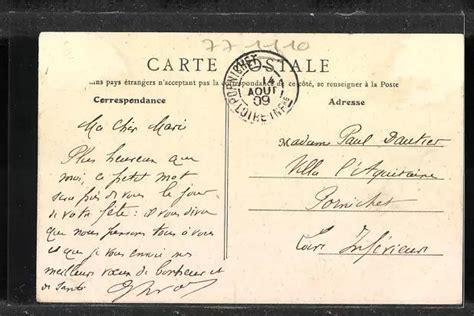 77-1110
CARTE POSTALE
pays étrangers n'acceptant pas la correspondance de ce côté, se renseigner à la Poste
PORNICHET
14
AOUT
09
LOIRE INFRE
Correspondance
Adresse
Ma Chère Marie
Plus heureux que
moi, ce petit mot
sera près de vous le jour
de votre fête : il vous dira
que nous pensons tous à vous
et que je vous envoie mes
meilleurs vœux de bonheur et
de Santé
Madame Paul Dautier
Villa l'Aquitaine
Pornichet
Loire Inférieure